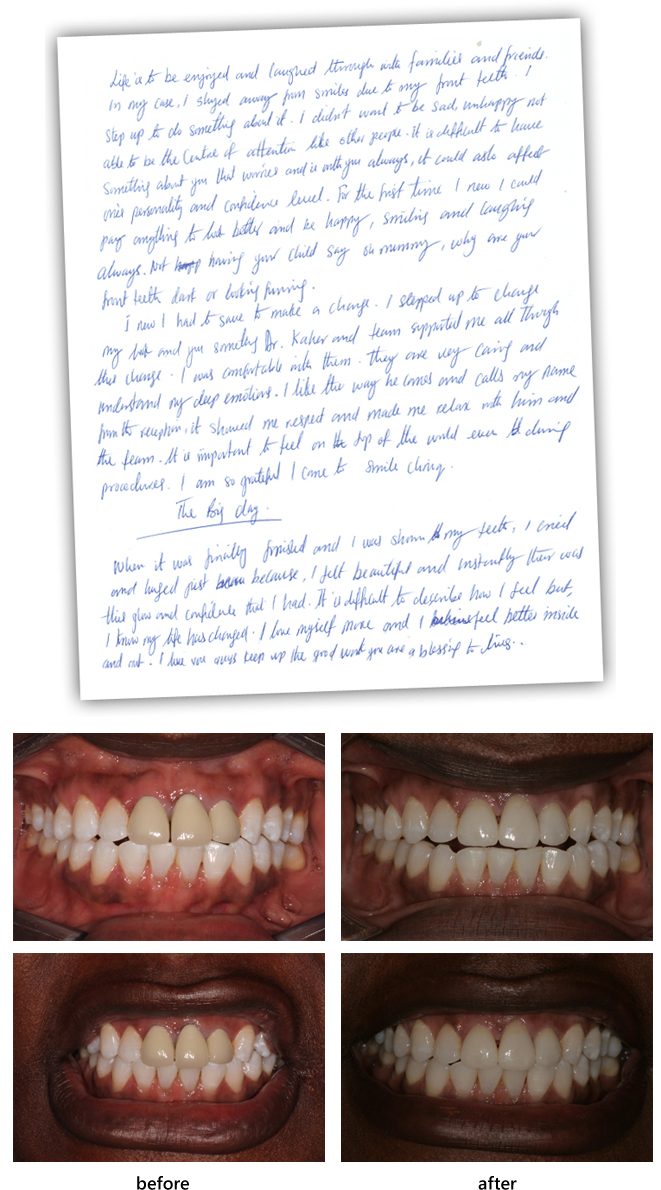 Life is to be enjoyed and laughed through with families and friends.
In my case, I shyed away from smiles due to my front teeth. I
step up to do something about it. I didn't want to be sad, unhappy not
able to be the Centre of attention like other people. it is difficult to have
something about you that worries and is with you always, it could also affect
one's personality and confidence level. For the first time I new I could
pay anything to look better and be happy, smiling and laughing
always. Not having your child say oh mummy, why are your
front teeth dark or looking funning.
I new I had to save to make a change. I stepped up to change
my look and you someting Dr. Kaher and team supported me all through
this change. I was comfortable with them. they are very caring and
understand my deep emotions. I like the way he comes and calls my name
from the reception, it showed me respect and made me relax with him and
the team. It is important to feel on the top of the world even during
procedures. I am so grateful I came to smile clinic.
The Big day.
When it was finally finished and I was shown my teeth, I cried
and huged just because, I felt beautiful and instantly there was
this glow and confidence that I had. It is difficult to describe how I feel but,
I know my life has changed. I love myself more and I feel better inside
and out. I love you guys keep up the good work you are a blessing to lives...
before
after